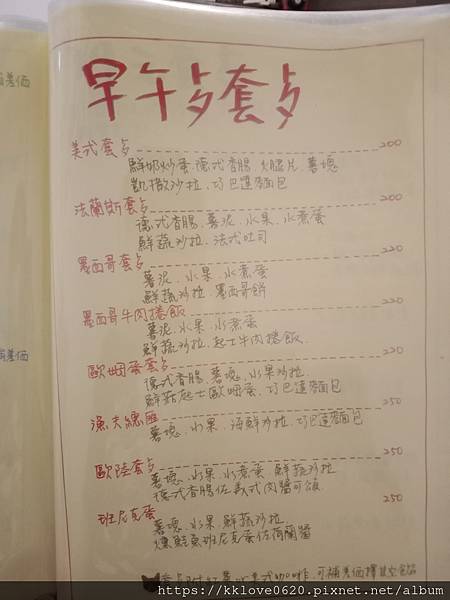 早午歺套歺
美式套歺 200
鮮奶炒蛋.德式香腸.火腿片.薯塊
凱撒沙拉.巧巴達麵包
法蘭斯套歺 200
德式香腸.薯泥.水果.水煮蛋
鮮蔬沙拉.法式吐司
墨西哥套歺 220
薯泥.水果.水煮蛋
鮮蔬沙拉.墨西哥餅
墨西哥牛肉捲飯 220
薯泥.水果.水煮蛋
鮮蔬沙拉.起士牛肉捲飯.
歐姆蛋套歺 220
德式香腸.薯塊.水果沙拉.
鮮菇起士歐姆蛋.巧巴達麵包
漁夫總匯 250
薯塊.水果.海鮮沙拉.巧巴達麵包
歐陸套歺 250
薯塊.水果.水煮蛋.鮮蔬沙拉
德式香腸佐義式肉醬可頌
班尼克蛋 250
薯塊.水果.鮮蔬沙拉.
燻鮭魚班尼克蛋佐荷蘭醬
套歺附紅茶or美式咖啡.可補差價擇其它飲品
補差価
補差価
https://kklove0620.pixnet.net/album